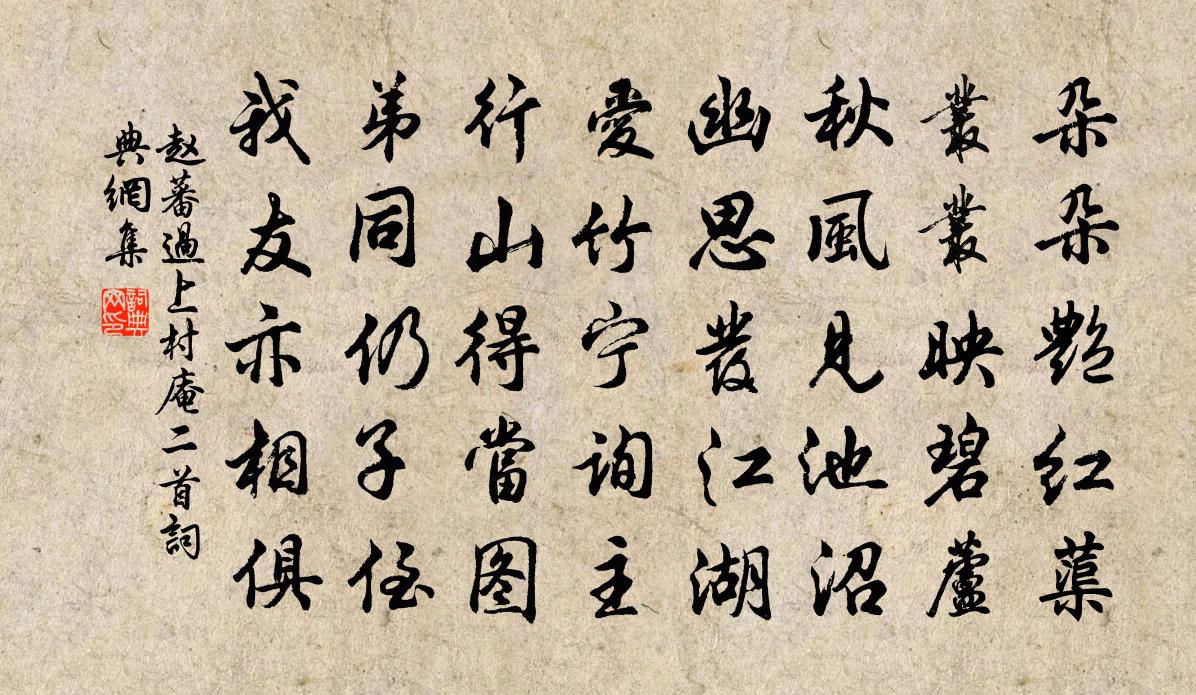 朵朵艷紅蕖
叢叢映碧蘆
秋風見池沼
幽思發江湖
愛竹宁詢主
行山得當图
弟同仍子侄
我友亦相俱
赵蕃過上村庵二首詞
典網集
詞典
网印